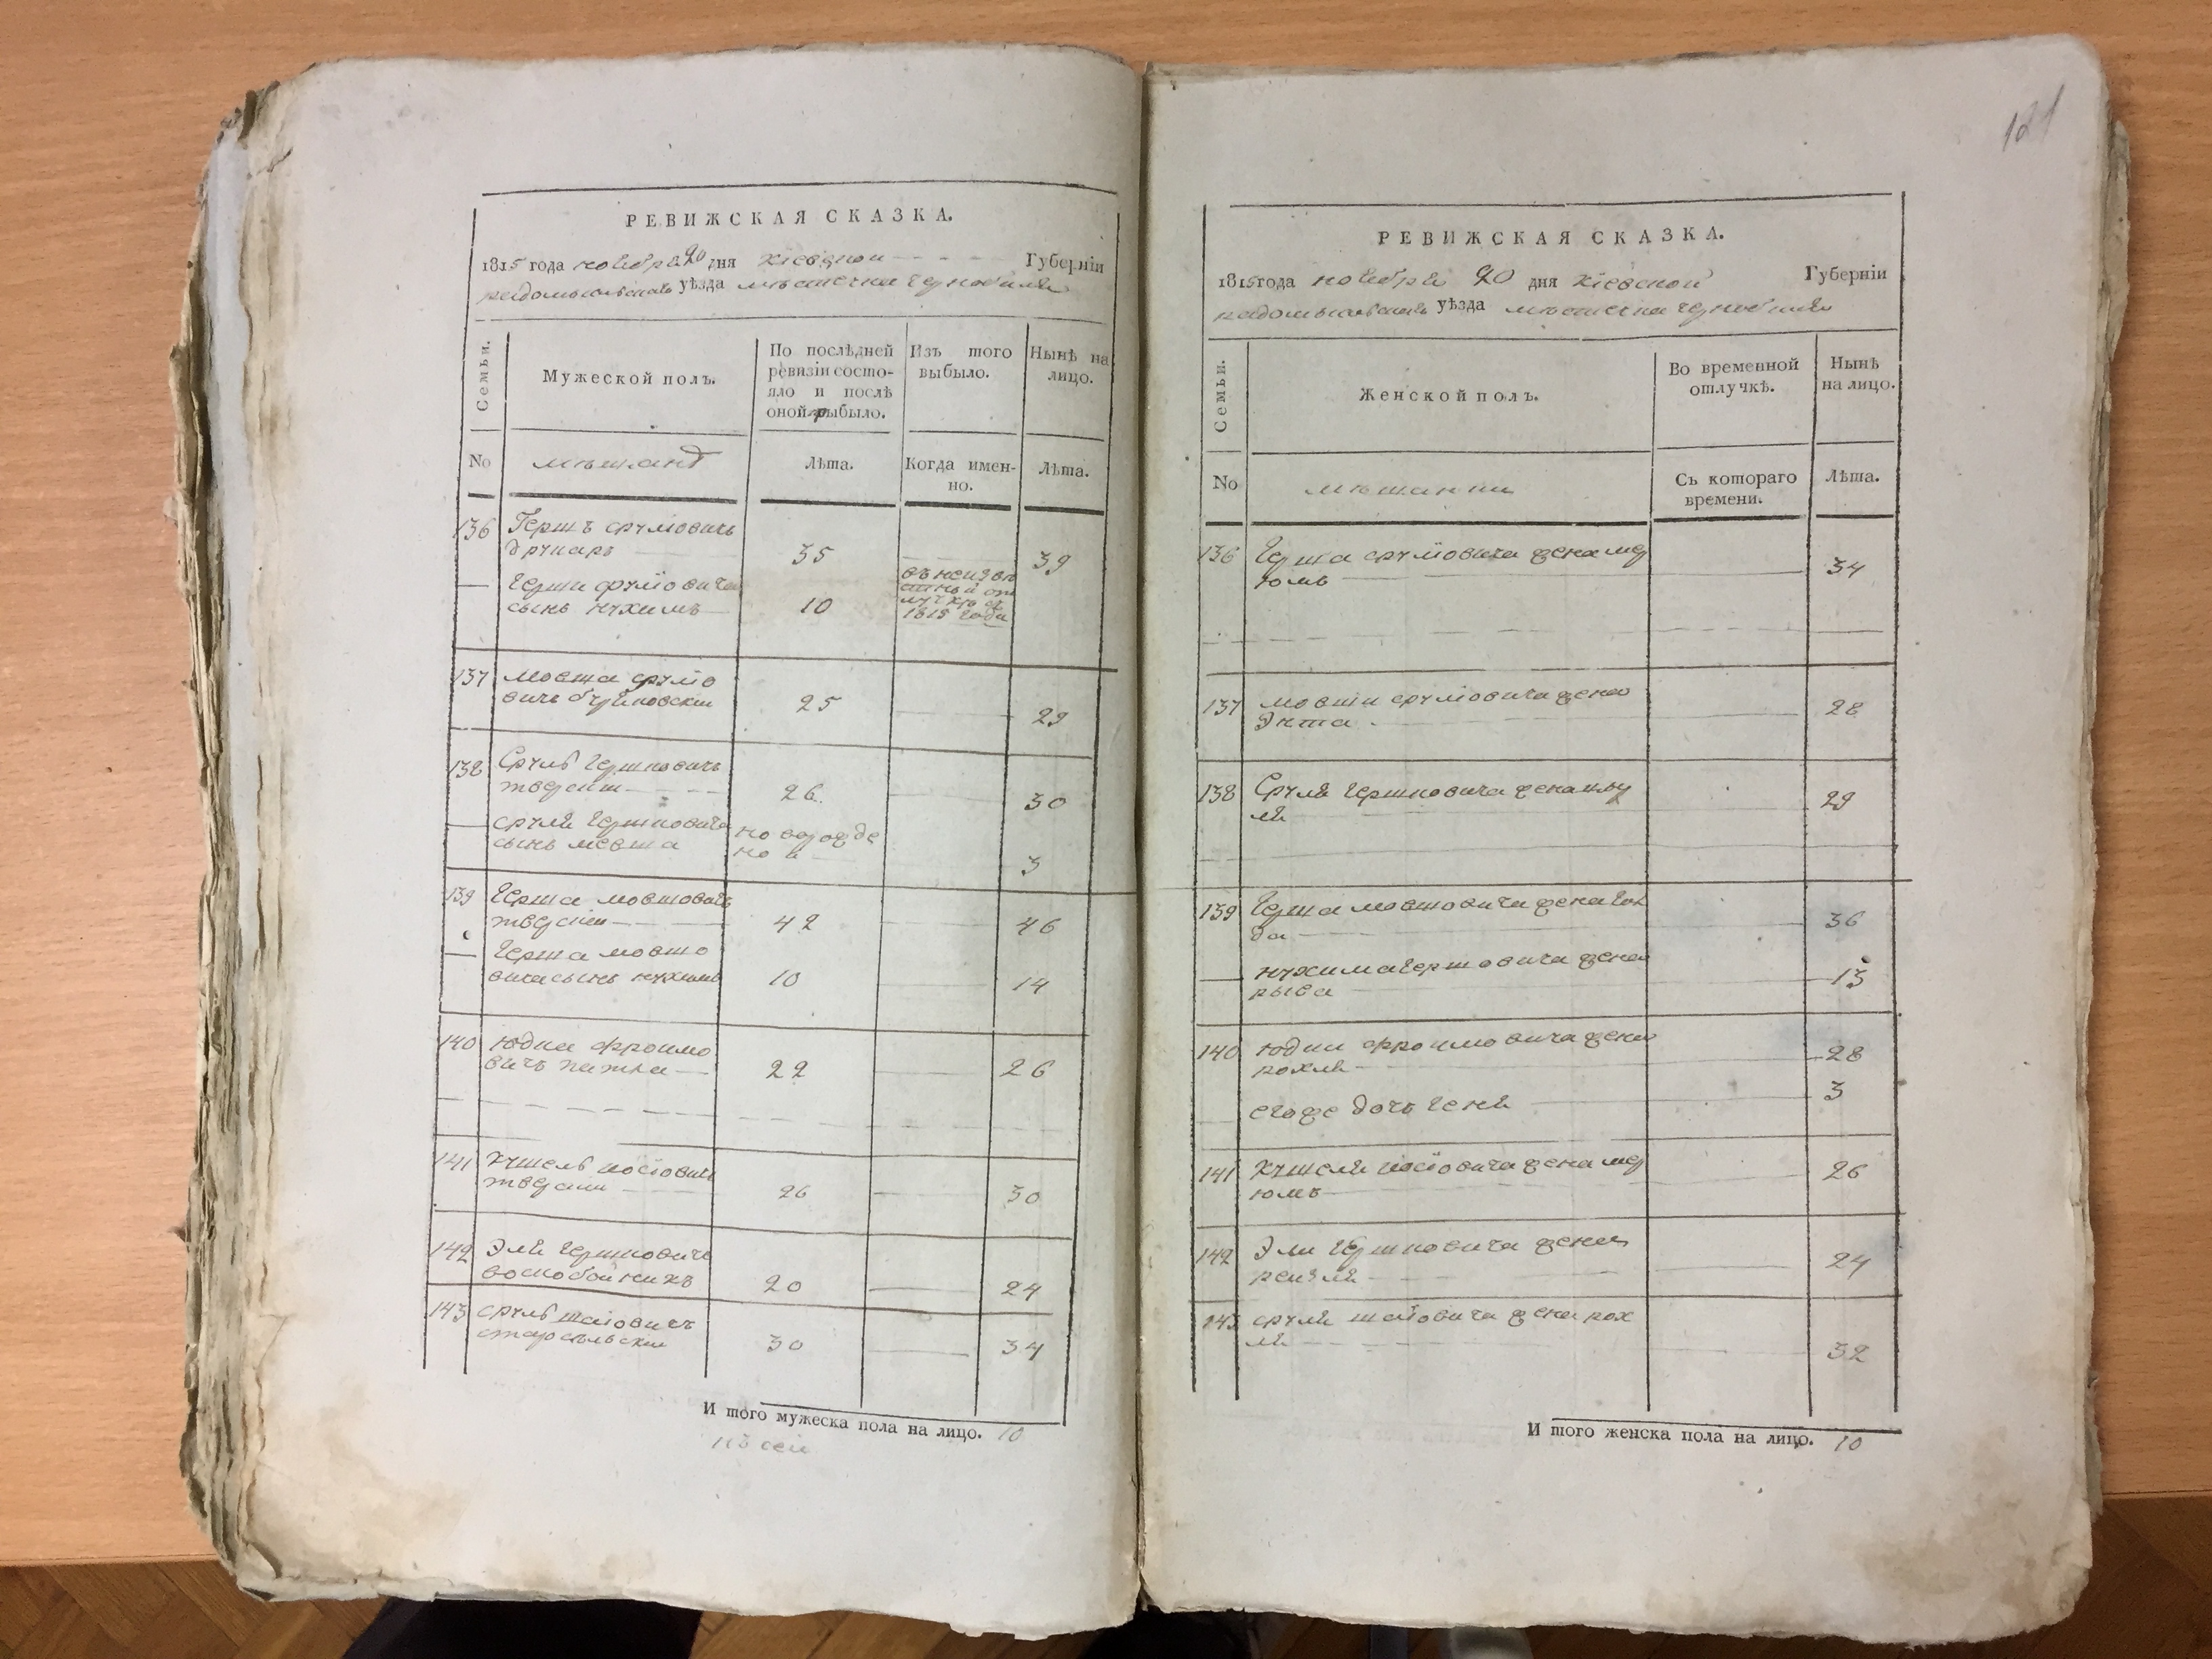 РЕВИЖСКАЯ СКАЗКА.
1815 года ноября 20 дня Кіевской Губерніи
радомысльскаго уѣзда мѣстечка Чернобиля
Семьи.
Мужеской полъ.
По послѣдней
ревизіи состо-
яло и послѣ
оной рыбыло.
Изъ того
выбыло.
Нынѣ на
лицо.
No
мѣщанѣ
Лѣта.
Когда имен-
но.
Лѣта.
136 Гершъ сруліовичъ
друкаръ 35 39
Герши сруліовича
сынъ нухимъ 10
въ неизвѣ
стной от
лучкѣ съ
1815 года
137 мовша сруліо
вичъ
25 29
138 Сруль Гершковичъ
26 30
сруля Гершковича
сынъ мовша
новорожде
ной
3
139 Герша мовшовичъ
42 46
Герша мовшо
вича сынъ нухимъ 10 14
140 Юдка фроимо
вичъ 22 26
141 Кушель іосіовичъ
26 30
142 Эля Гершковичъ
воскобойникъ 20 24
143 сруль шаіовичъ
старосельскій 30 34
И того мужеска пола на лицо. 10
121
РЕВИЖСКАЯ СКАЗКА.
1815 года ноября 20 дня Кіевской Губерніи
радомысльскаго уѣзда мѣстечка Чернобиля
Семьи.
Женской полъ.
Во временной
отлучкѣ.
Нынѣ
на лицо.
No
мѣщанки
Съ котораго
времени.
Лѣта.
136 Герша сруліовича жена мер
юмь 34
137 мовши сруліовича жена
Энта 28
138 Сруля Гершковича жена
29
139 Герша мовшовича жена Гол
да 36
нухима Гершовича жена
рыва 13
140 Юдки фроимовича жена
рохля 28
егоже дочь Геня 3
141 Кушеля іосіовича жена мер
юмъ 26
142 Эли Гершковича жена
рейзля 24
143 сруля шаіовича жена рох
ля 32
И того женска пола на лицо. 10